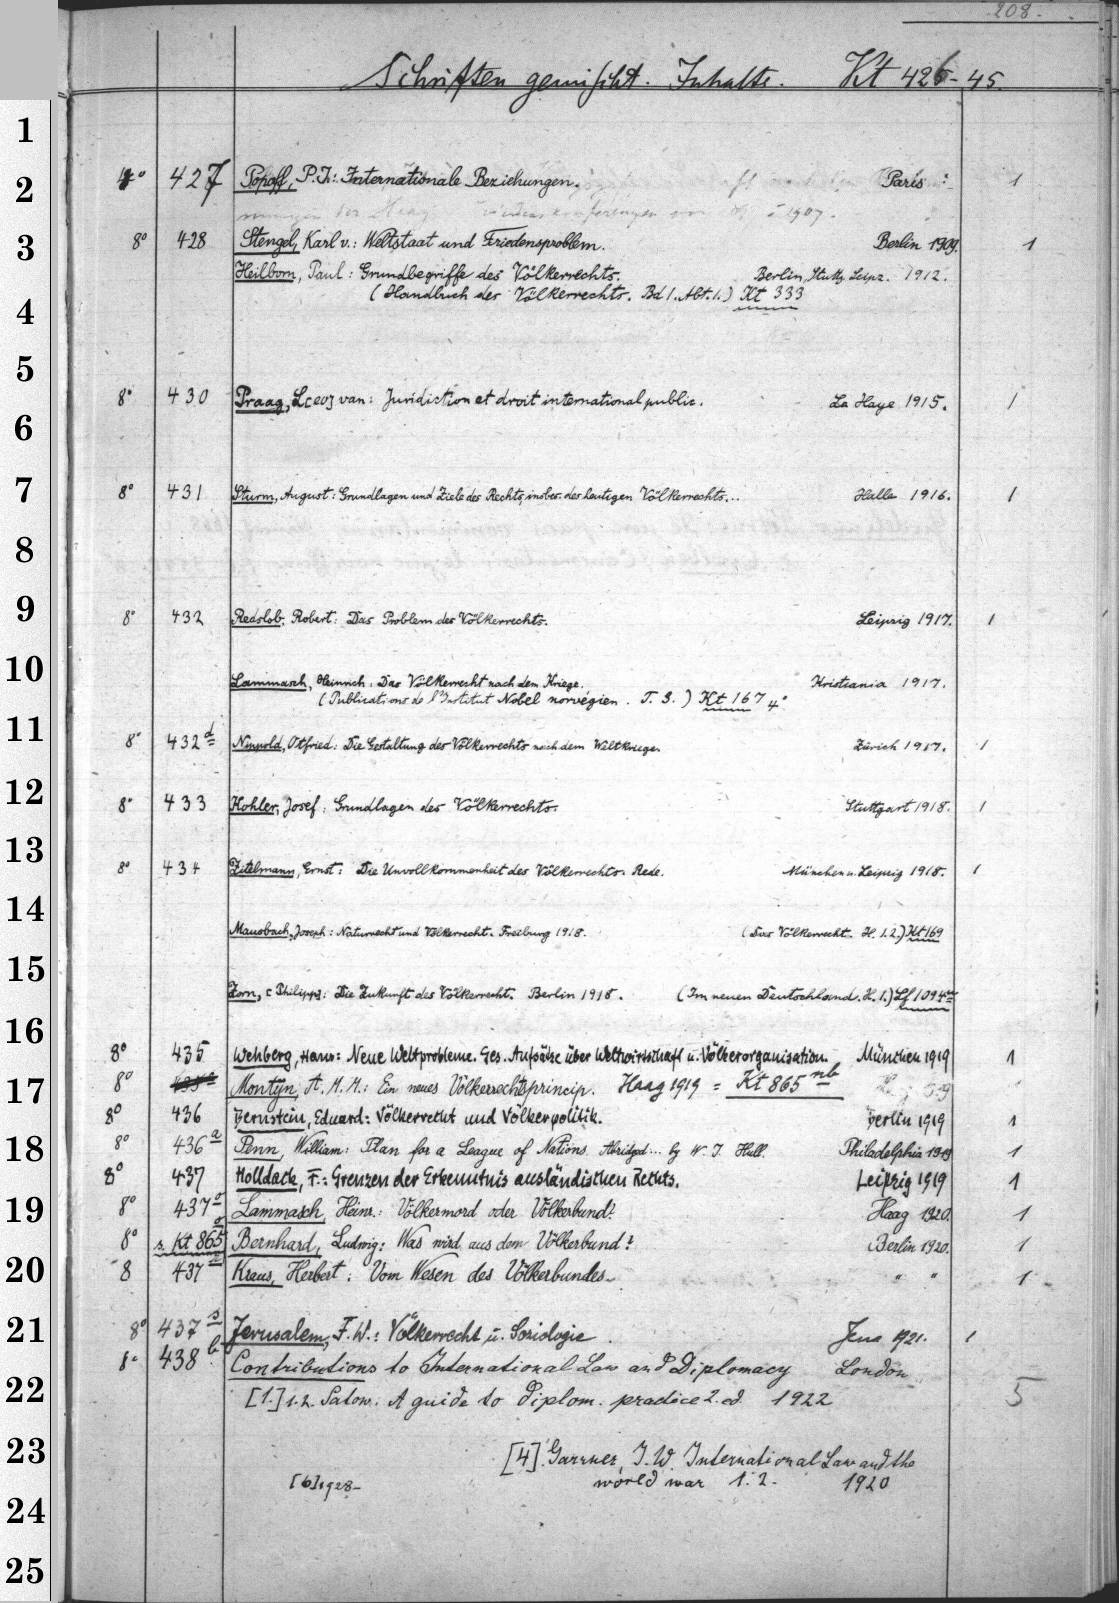 208.
Schriften gemischt. Inhalts. Kt 426-45.
1
2 4° 427 Popoff, P. I.: Internationale Beziehungen. Paris 1
1907.
3 8° 428 Stengel, Karl v.: Weltstaat und Friedensproblem. Berlin 1909. 1
Heilborn, Paul: Grundbegriffe des Völkerrechts. Berlin, Stuttg. Leipz. 1912.
4 (Handbuch des Völkerrechts. Bd 1. Abt. 1.) Kt 333
5
8° 430 Praag, L[eo] van: Juridiction et droit international public. La Haye 1915. 1
6
7 8° 431 Sturm, August: Grundlagen und Ziele des Rechts, insbes. des heutigen Völkerrechts... Halle 1916. 1
8
9 8° 432 Redslob, Robert: Das Problem des Völkerrechts. Leipzig 1917. 1
10 Lammasch, Heinrich: Das Völkerrecht nach dem Kriege. Kristiania 1917.
(Publications de l'Institut Nobel norvégien. T. 3.) Kt 167 4°
11 8° 432 d Nippold, Otfried: Die Gestaltung des Völkerrechts nach dem Weltkriege. Zürich 1917. 1
12 8° 433 Kohler, Josef: Grundlagen des Völkerrechts. Stuttgart 1918. 1
13 8° 434 Zitelmann, Ernst: Die Unvollkommenheit des Völkerrechts. Rede. München u. Leipzig 1918. 1
14 Mausbach, Joseph: Naturrecht und Völkerrecht. Freiburg 1918. (Das Völkerrecht. H. 1.2.) Kt 169
15 Zorn, [Philipp]: Die Zukunft des Völkerrechts. Berlin 1918. (Im neuen Deutschland. H. 1.) Lf 1094
16 8° 435 Wehberg, Hans: Neue Weltprobleme. Ges. Aufsätze über Weltwirtschaft u. Völkerorganisation. München 1919 1
17 8° 435a Montijn, A. M. M.: Ein neues Völkerrechtsprincip. Haag 1919 = Kt 865 nb
8° 436 Bernstein, Eduard: Völkerrecht und Völkerpolitik. Berlin 1919 1
18 8° 436 a Penn, William: Plan for a League of Nations. Abridged... by W. I. Hull. Philadelphia 1919 1
8° 437 Holldack, F.: Grenzen der Erkenntnis ausländischen Rechts. Leipzig 1919 1
19 8° 437 Lammasch, Heinr.: Völkermord oder Völkerbund? Haag 1920. 1
8° s. Kt 865 Bernhard, Ludwig: Was wird aus dem Völkerbund? Berlin 1920. 1
20 8 437 Kraus, Herbert: Vom Wesen des Völkerbundes. " " 1
21 8° 437 s Jerusalem, F. W.: Völkerrecht u. Soziologie. Jena 1921. 1
8° 438 b Contributions to International Law and Diplomacy London
22 [1.] 1.2. Satow: A guide to diplom. practice 2. ed. 1922 5
23 [4] Garner, J. W. International Law and the
[6] 1928- world war 1. 2. 1920
24
25